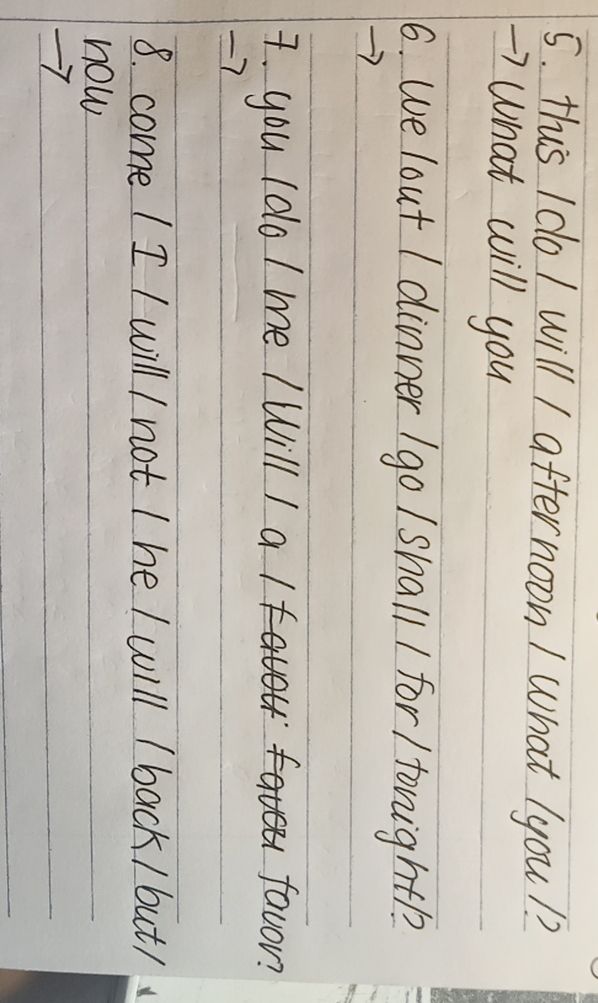 5. this / do / will / afternoon / what / you / ?
→ what will you
6. we / out / dinner / go / shall / for / tonight / ?
→
7. you / do / me / will / a / favou favou favor?
→
8. come / I / will / not / he / will / back / but /
now
→